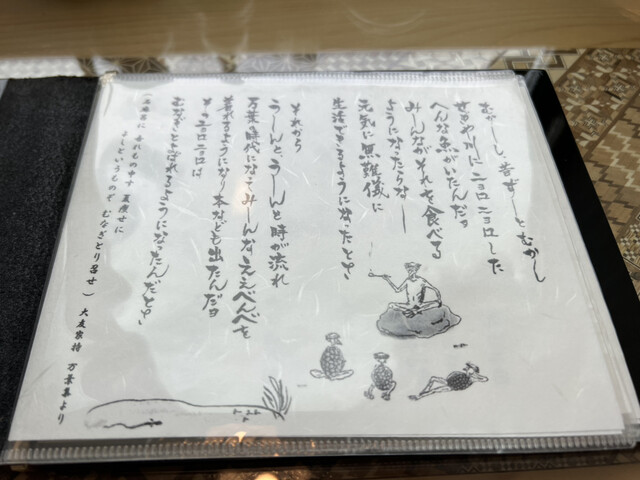 むかーし、昔ずーとむかし
せせらぎにニョロニョロした
へんな魚がいたんだヨ
みーんながそれを食べる
ようになったらなー
元気に無難儀に
生活できるようになったとサ
それから
うーんと、うーんと時が流れ
万葉時代になってみーんなええべんべを
着れるようになり本なども出たんだヨ
そのニョロニョロは
むなぎとよばれるようになったんだとサ
(石麻呂に 吾れもの申す 夏痩せに
よしというものぞ むなぎとり召せ) 大友家持 万葉集より